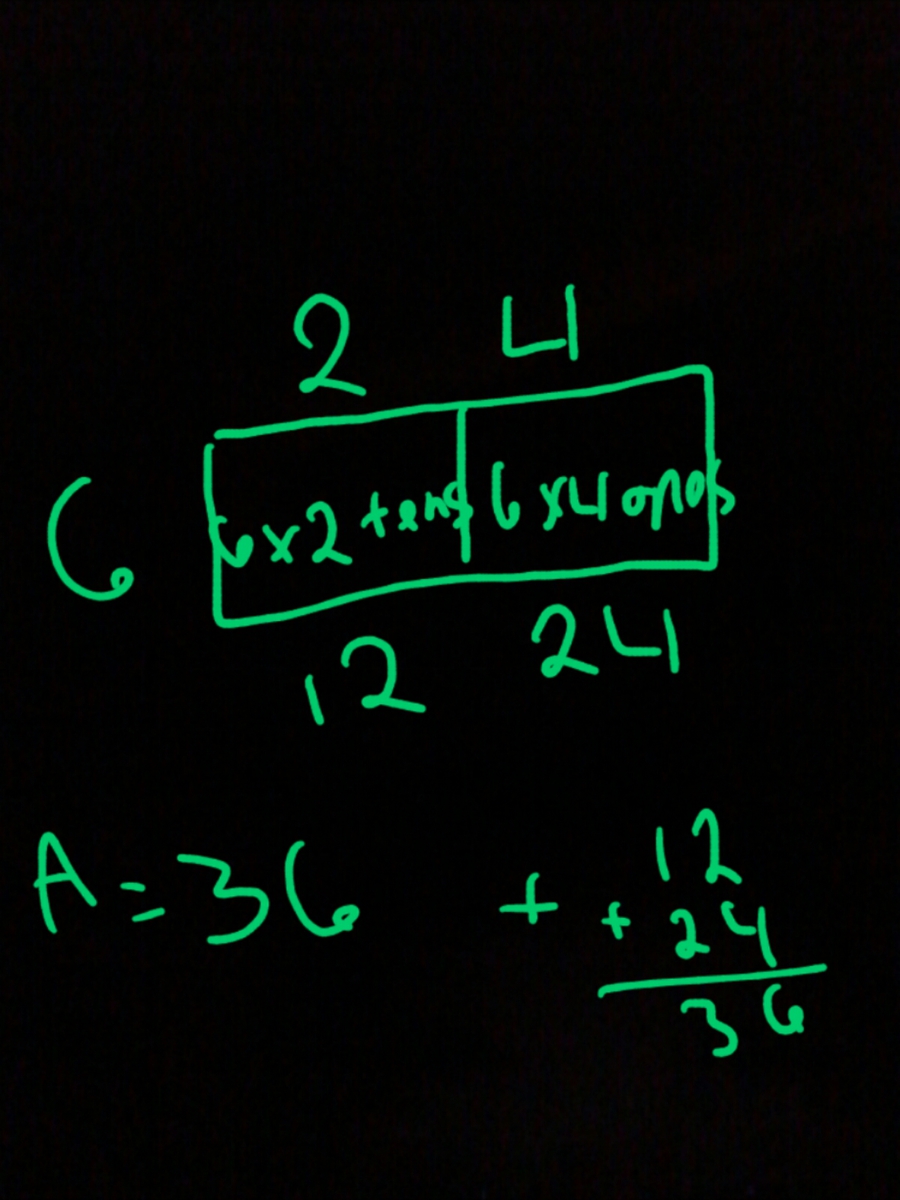 2 4
6 6x2 tens 6x4 ones
12 24
A=36
+ 12
+ 24
36